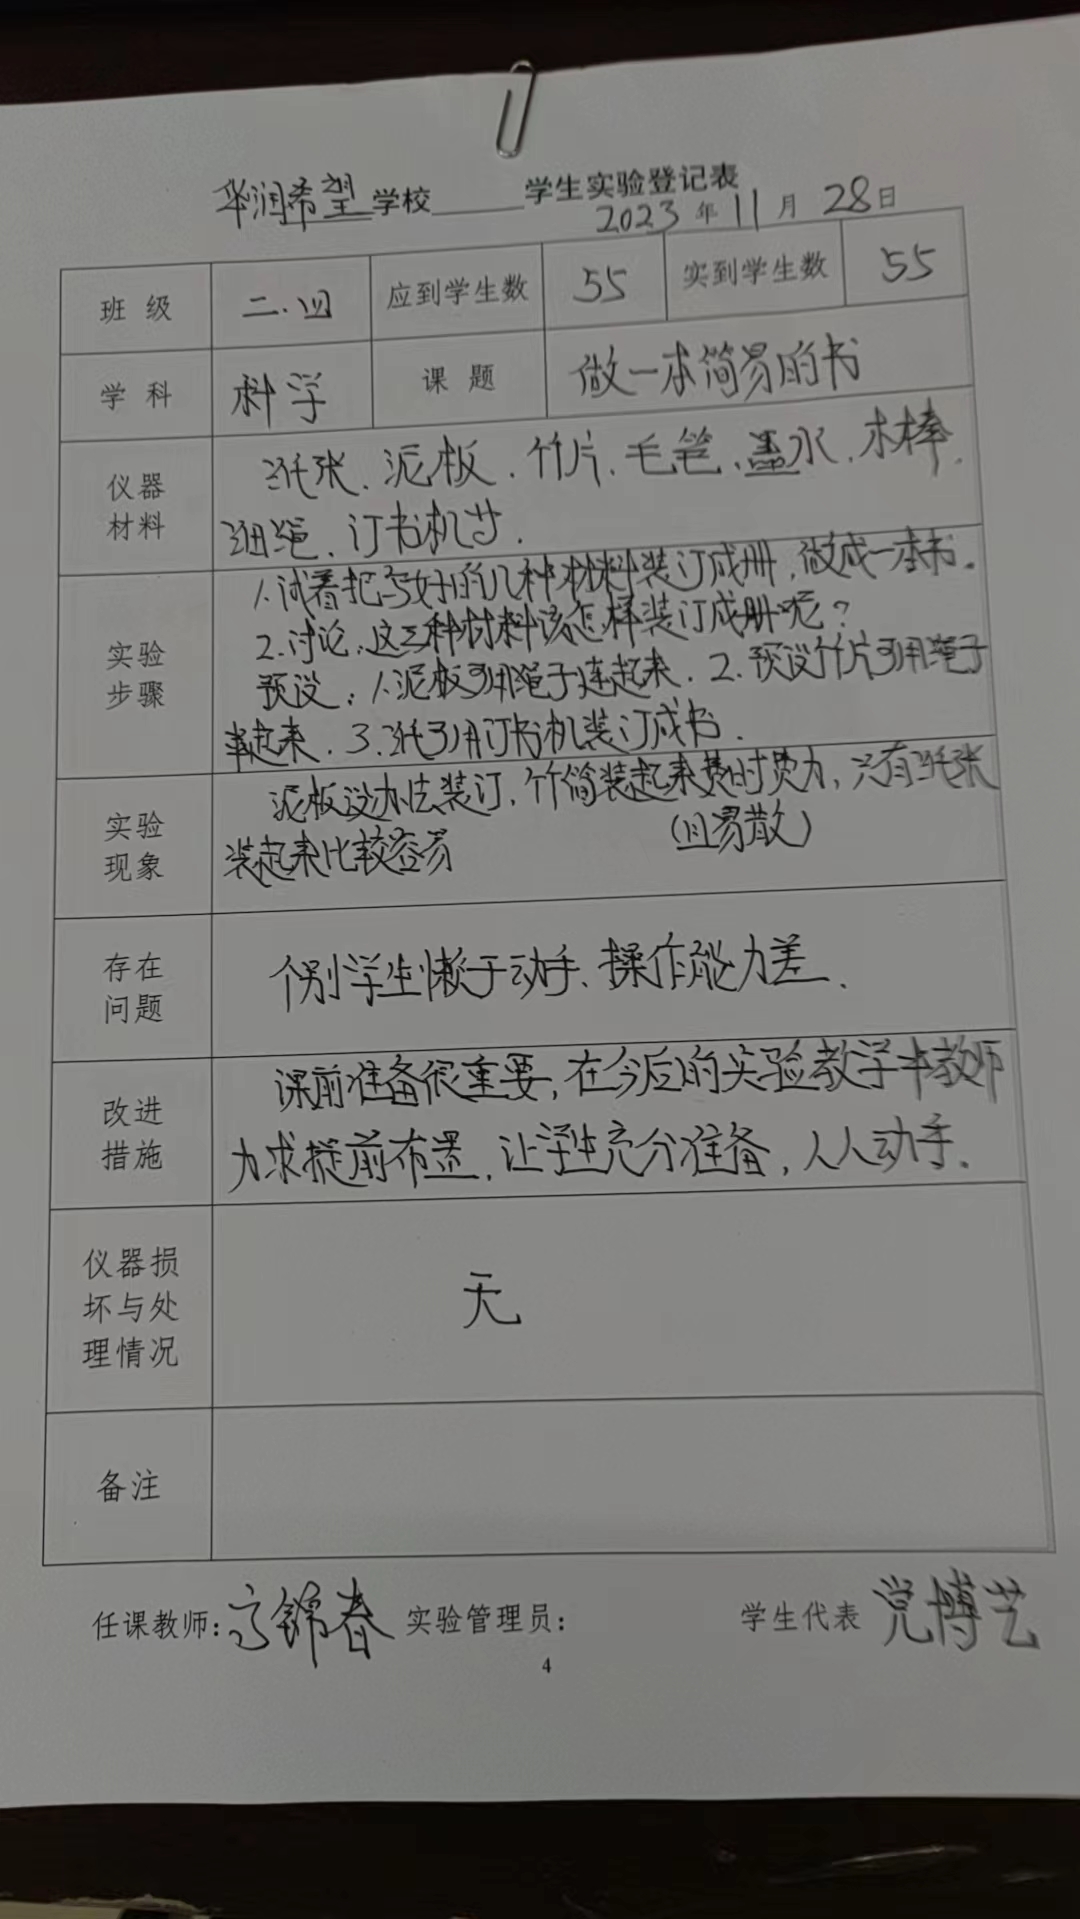 华润希望学校______学生实验登记表
2023年11月28日
班级 二.四 应到学生数 55 实到学生数 55
学科 科学 课题 做一本简易的书
仪器材料 纸张、泥板、竹片、毛笔、墨水、木棒、
细绳、订书机等.
实验步骤 1.试着把写好的几种材料装订成册,做成一本书。
2.讨论:这三种材料该怎样装订成册呢?
预设:1.泥板可用绳子连起来.2.预设竹片可用绳子
串起来.3.纸可用订书机装订成书.
实验现象 泥板没办法装订,竹简装起来费时费力,只有纸张
装起来比较容易 (且易散)
存在问题 个别学生懒于动手、操作能力差.
改进措施 课前准备很重要,在今后的实验教学中教师
力求提前布置,让学生充分准备,人人动手.
仪器损坏与处理情况 无
备注
任课教师:高锦春 实验管理员: 学生代表 党博艺
4